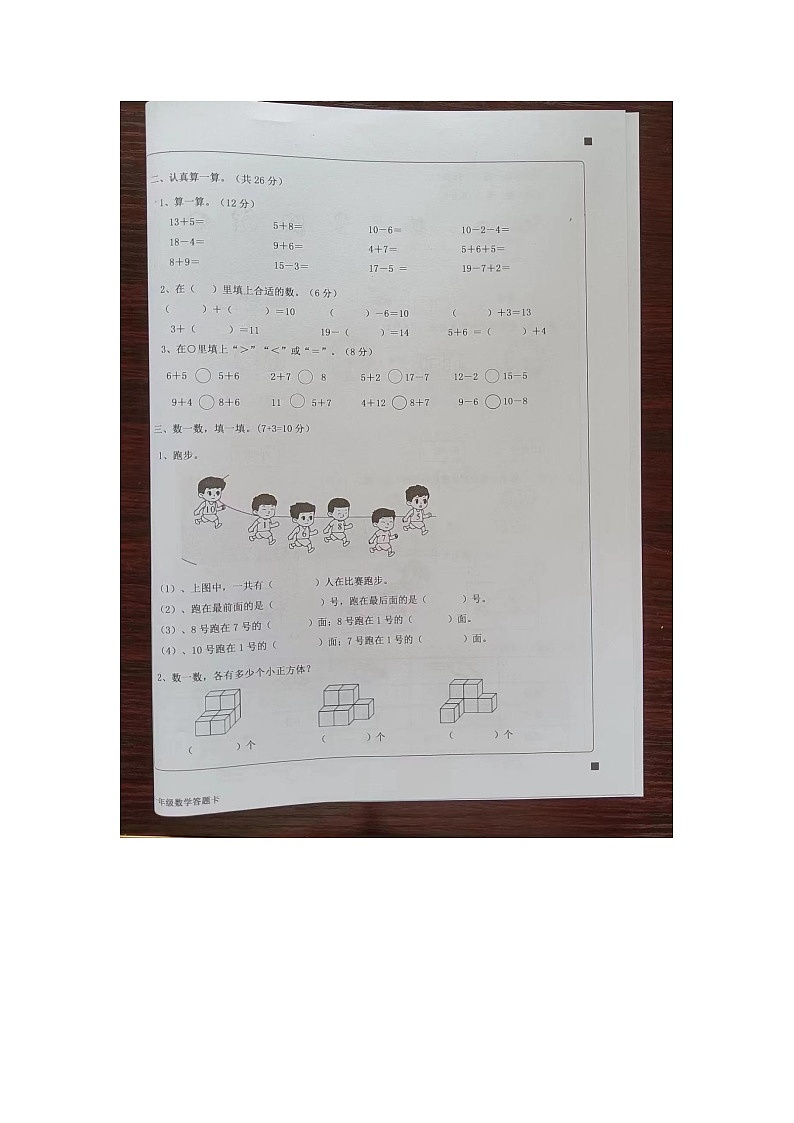 二、认真算一算。(共26分)
1、算一算。(12分)
13+5= 5+8= 10-6= 10-2-4=
18-4= 9+6= 4+7= 5+6+5=
8+9= 15-3= 17-5 = 19-7+2=
2、在( )里填上合适的数。(6分)
( )+( )=10 ( )-6=10 ( )+3=13
3+( )=11 19-( )=14 5+6 =( )+4
3、在○里填上“>”“<”或“=”。(8分)
6+5 ○ 5+6 2+7 ○ 8 5+2 ○ 17-7 12-2 ○ 15-5
9+4 ○ 8+6 11 ○ 5+7 4+12 ○ 8+7 9-6 ○ 10-8
三、数一数,填一填。(7+3=10分)
1、跑步。
10 1 6 8 7 5
(1)、上图中,一共有( )人在比赛跑步。
(2)、跑在最前面的是( )号,跑在最后面的是( )号。
(3)、8号跑在7号的( )面;8号跑在1号的( )面。
(4)、10号跑在1号的( )面;7号跑在1号的( )面。
2、数一数,各有多少个小正方体?
( )个 ( )个 ( )个
年级数学答题卡